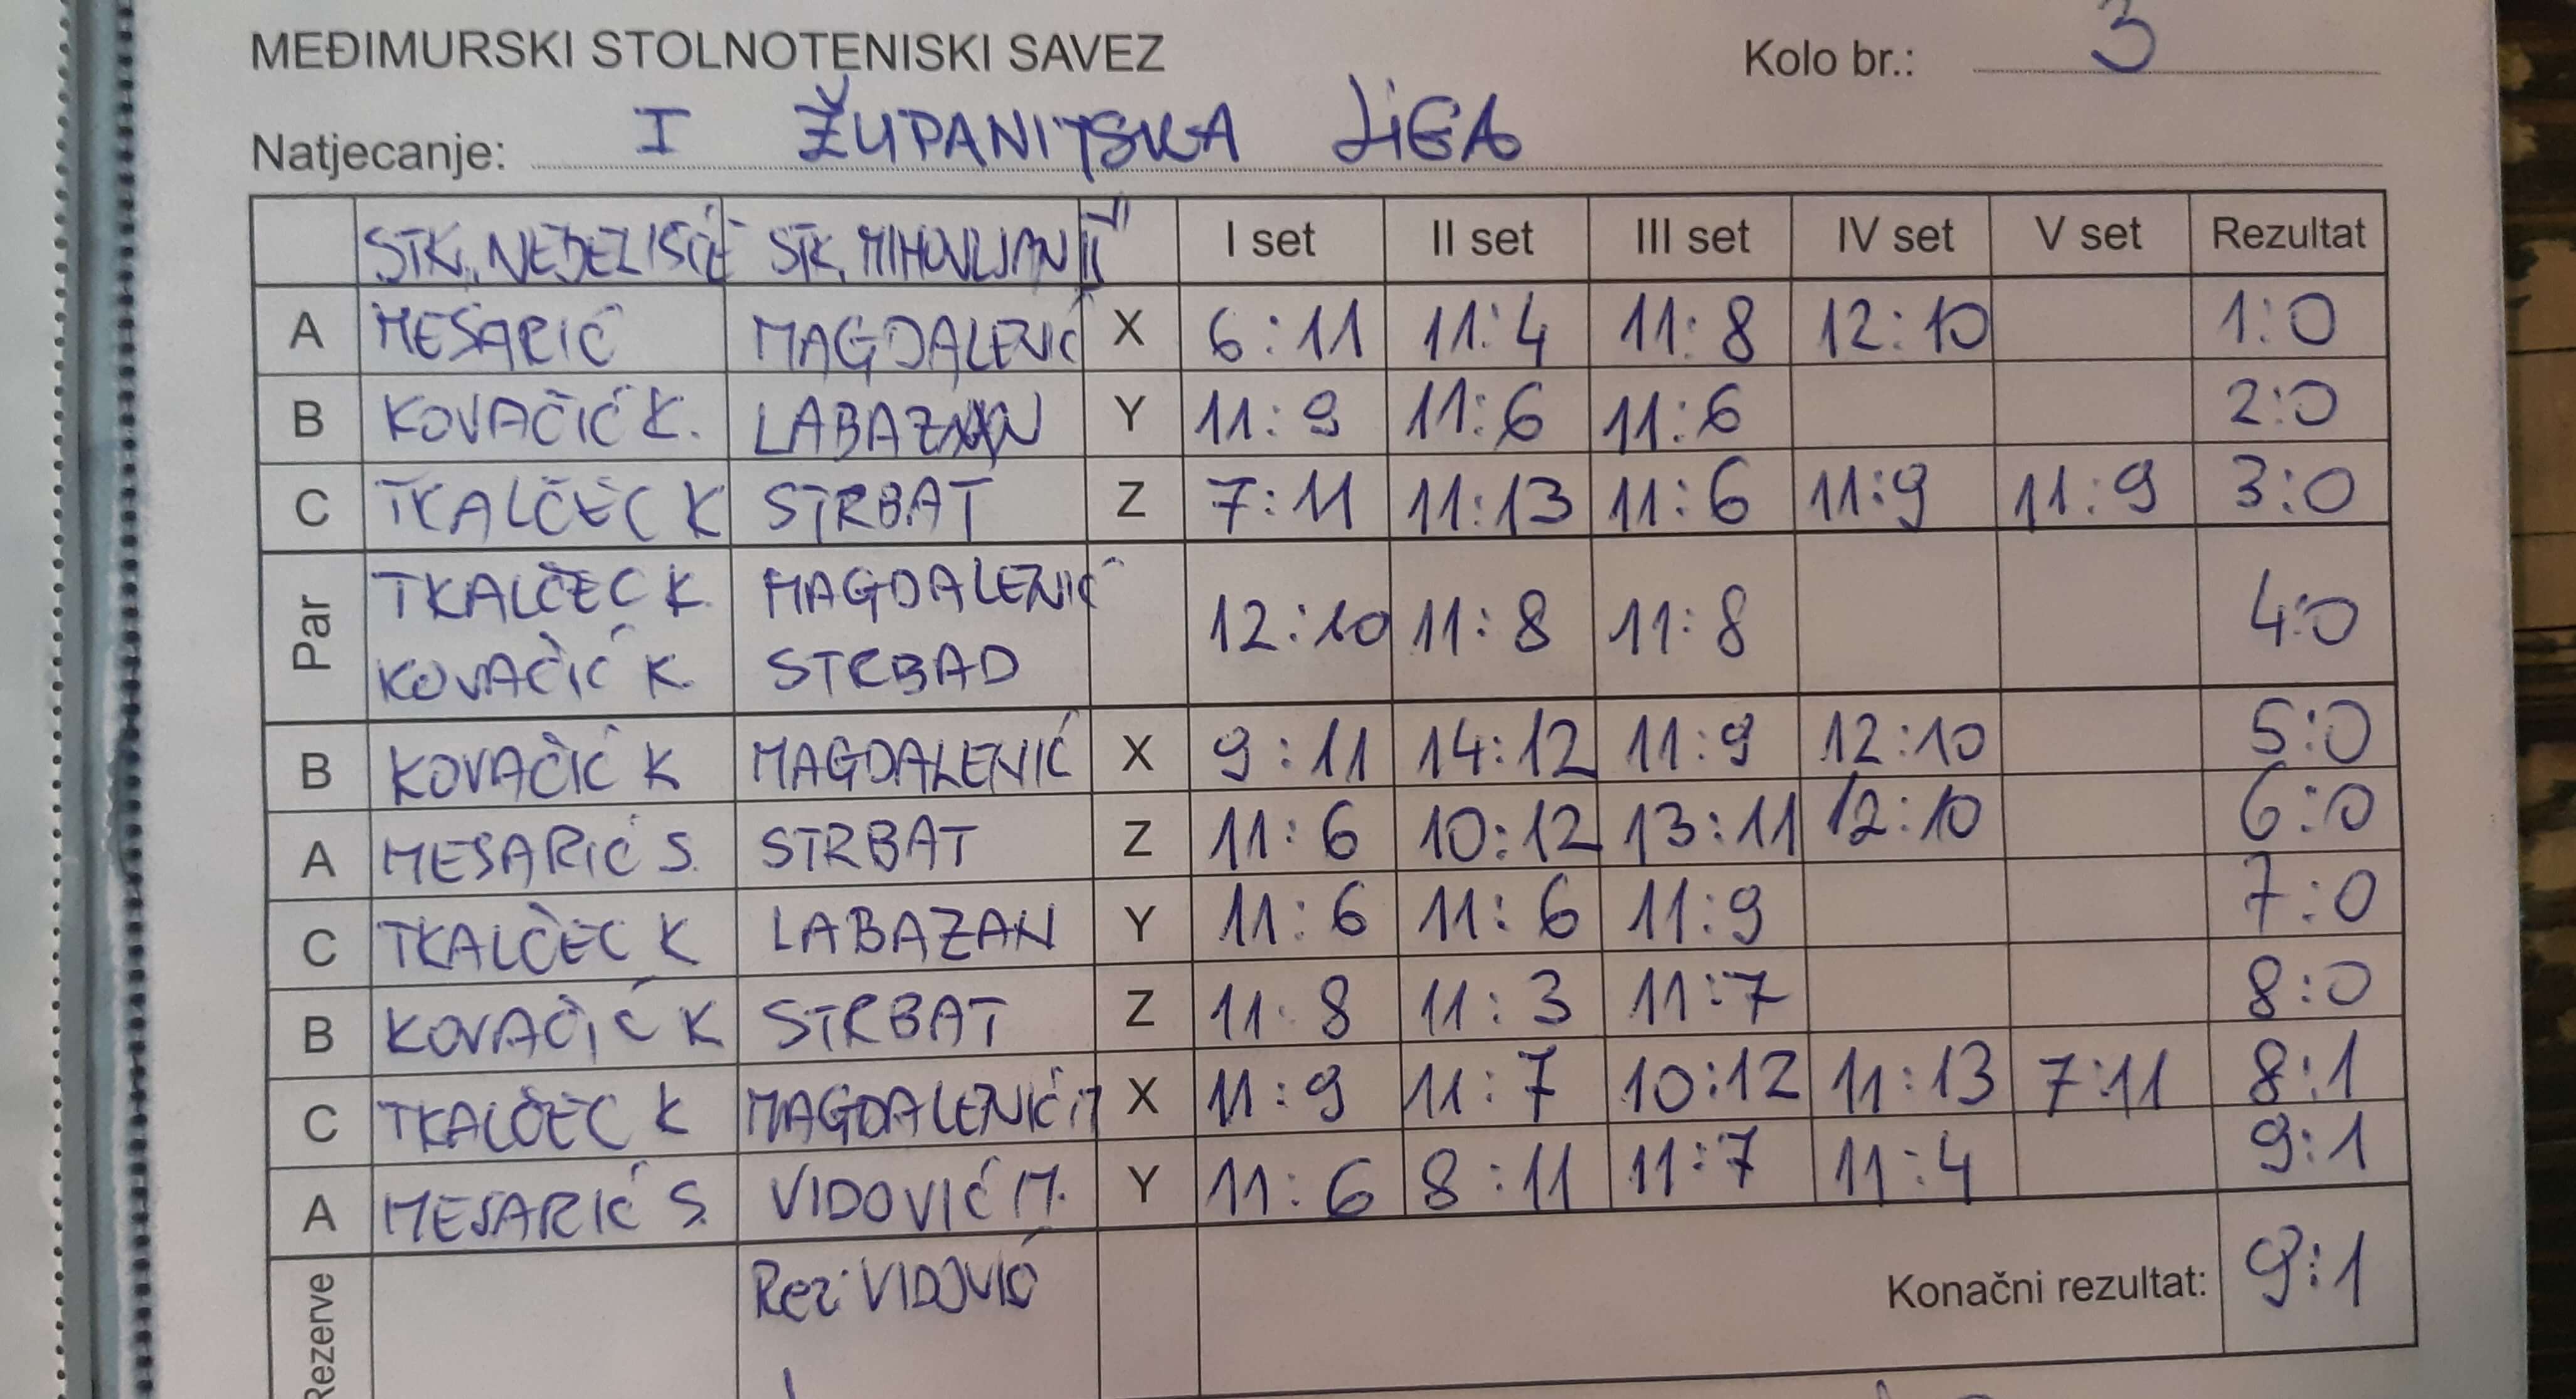 MEĐIMURSKI STOLNOTENISKI SAVEZ Kolo br.: 3
Natjecanje: I ŽUPANIJSKA LIGA
STK. NEDELIŠĆE STK. MIHOVLJAN II I set II set III set IV set V set Rezultat
A MESARIĆ MAGDALENIĆ X 6:11 11:4 11:8 12:10 1:0
B KOVAČIĆ K. LABAZAN Y 11:9 11:6 11:6 2:0
C TKALČEC K STRBAT Z 7:11 11:13 11:6 11:9 11:9 3:0
Par TKALČEC K. MAGDALENIĆ 12:10 11:8 11:8 4:0
KOVAČIĆ K. STRBAD
B KOVAČIĆ K MAGDALENIĆ X 9:11 14:12 11:9 12:10 5:0
A MESARIĆ S. STRBAT Z 11:6 10:12 13:11 12:10 6:0
C TKALČEC K LABAZAN Y 11:6 11:6 11:9 7:0
B KOVAČIĆ K STRBAT Z 11:8 11:3 11:7 8:0
C TKALČEC K MAGDALENIĆ M X 11:9 11:7 10:12 11:13 7:11 8:1
A MESARIĆ S. VIDOVIĆ M. Y 11:6 8:11 11:7 11:4 9:1
Rezerve Rez: VIDOVIĆ Konačni rezultat: 9:1